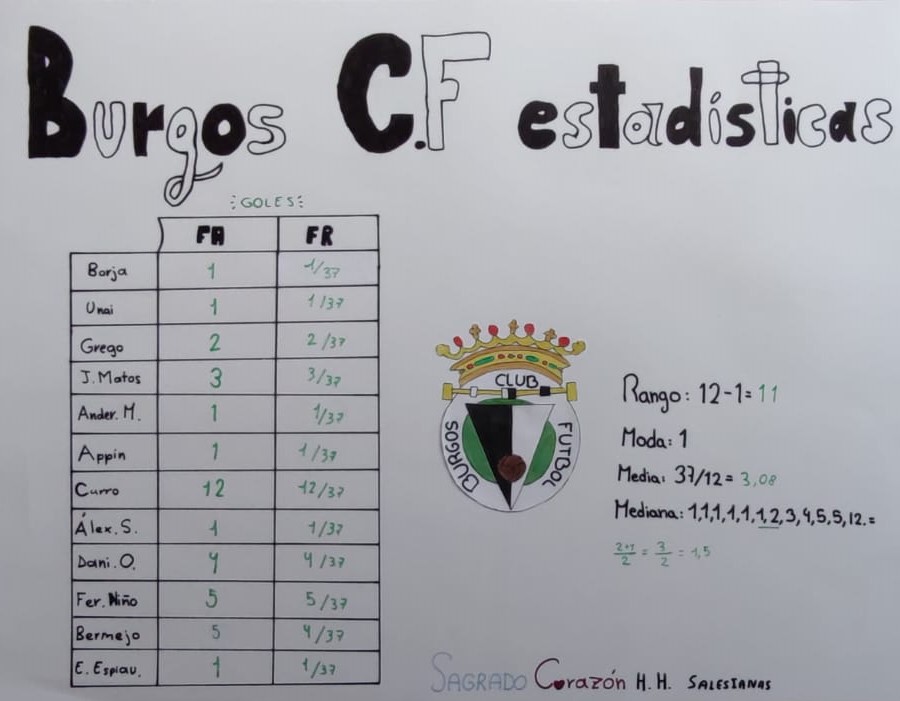 Burgos C.F estadísticas
GOLES
FA FR
Borja 1 1/37
Unai 1 1/37
Grego 2 2/37
J. Matos 3 3/37
Ander. M. 1 1/37
Appin 1 1/37
Curro 12 12/37
Álex. S. 1 1/37
Dani. O. 4 4/37
Fer. Niño 5 5/37
Bermejo 5 4/37
E. Espiau. 1 1/37
CLUB
BURGOS
FUTBOL
Rango: 12-1= 11
Moda: 1
Media: 37/12= 3,08
Mediana: 1,1,1,1,1,1,2,3,4,5,5,12.=
2+1/2 = 3/2 = 1,5
SAGRADO Corazón H.H. SALESIANAS